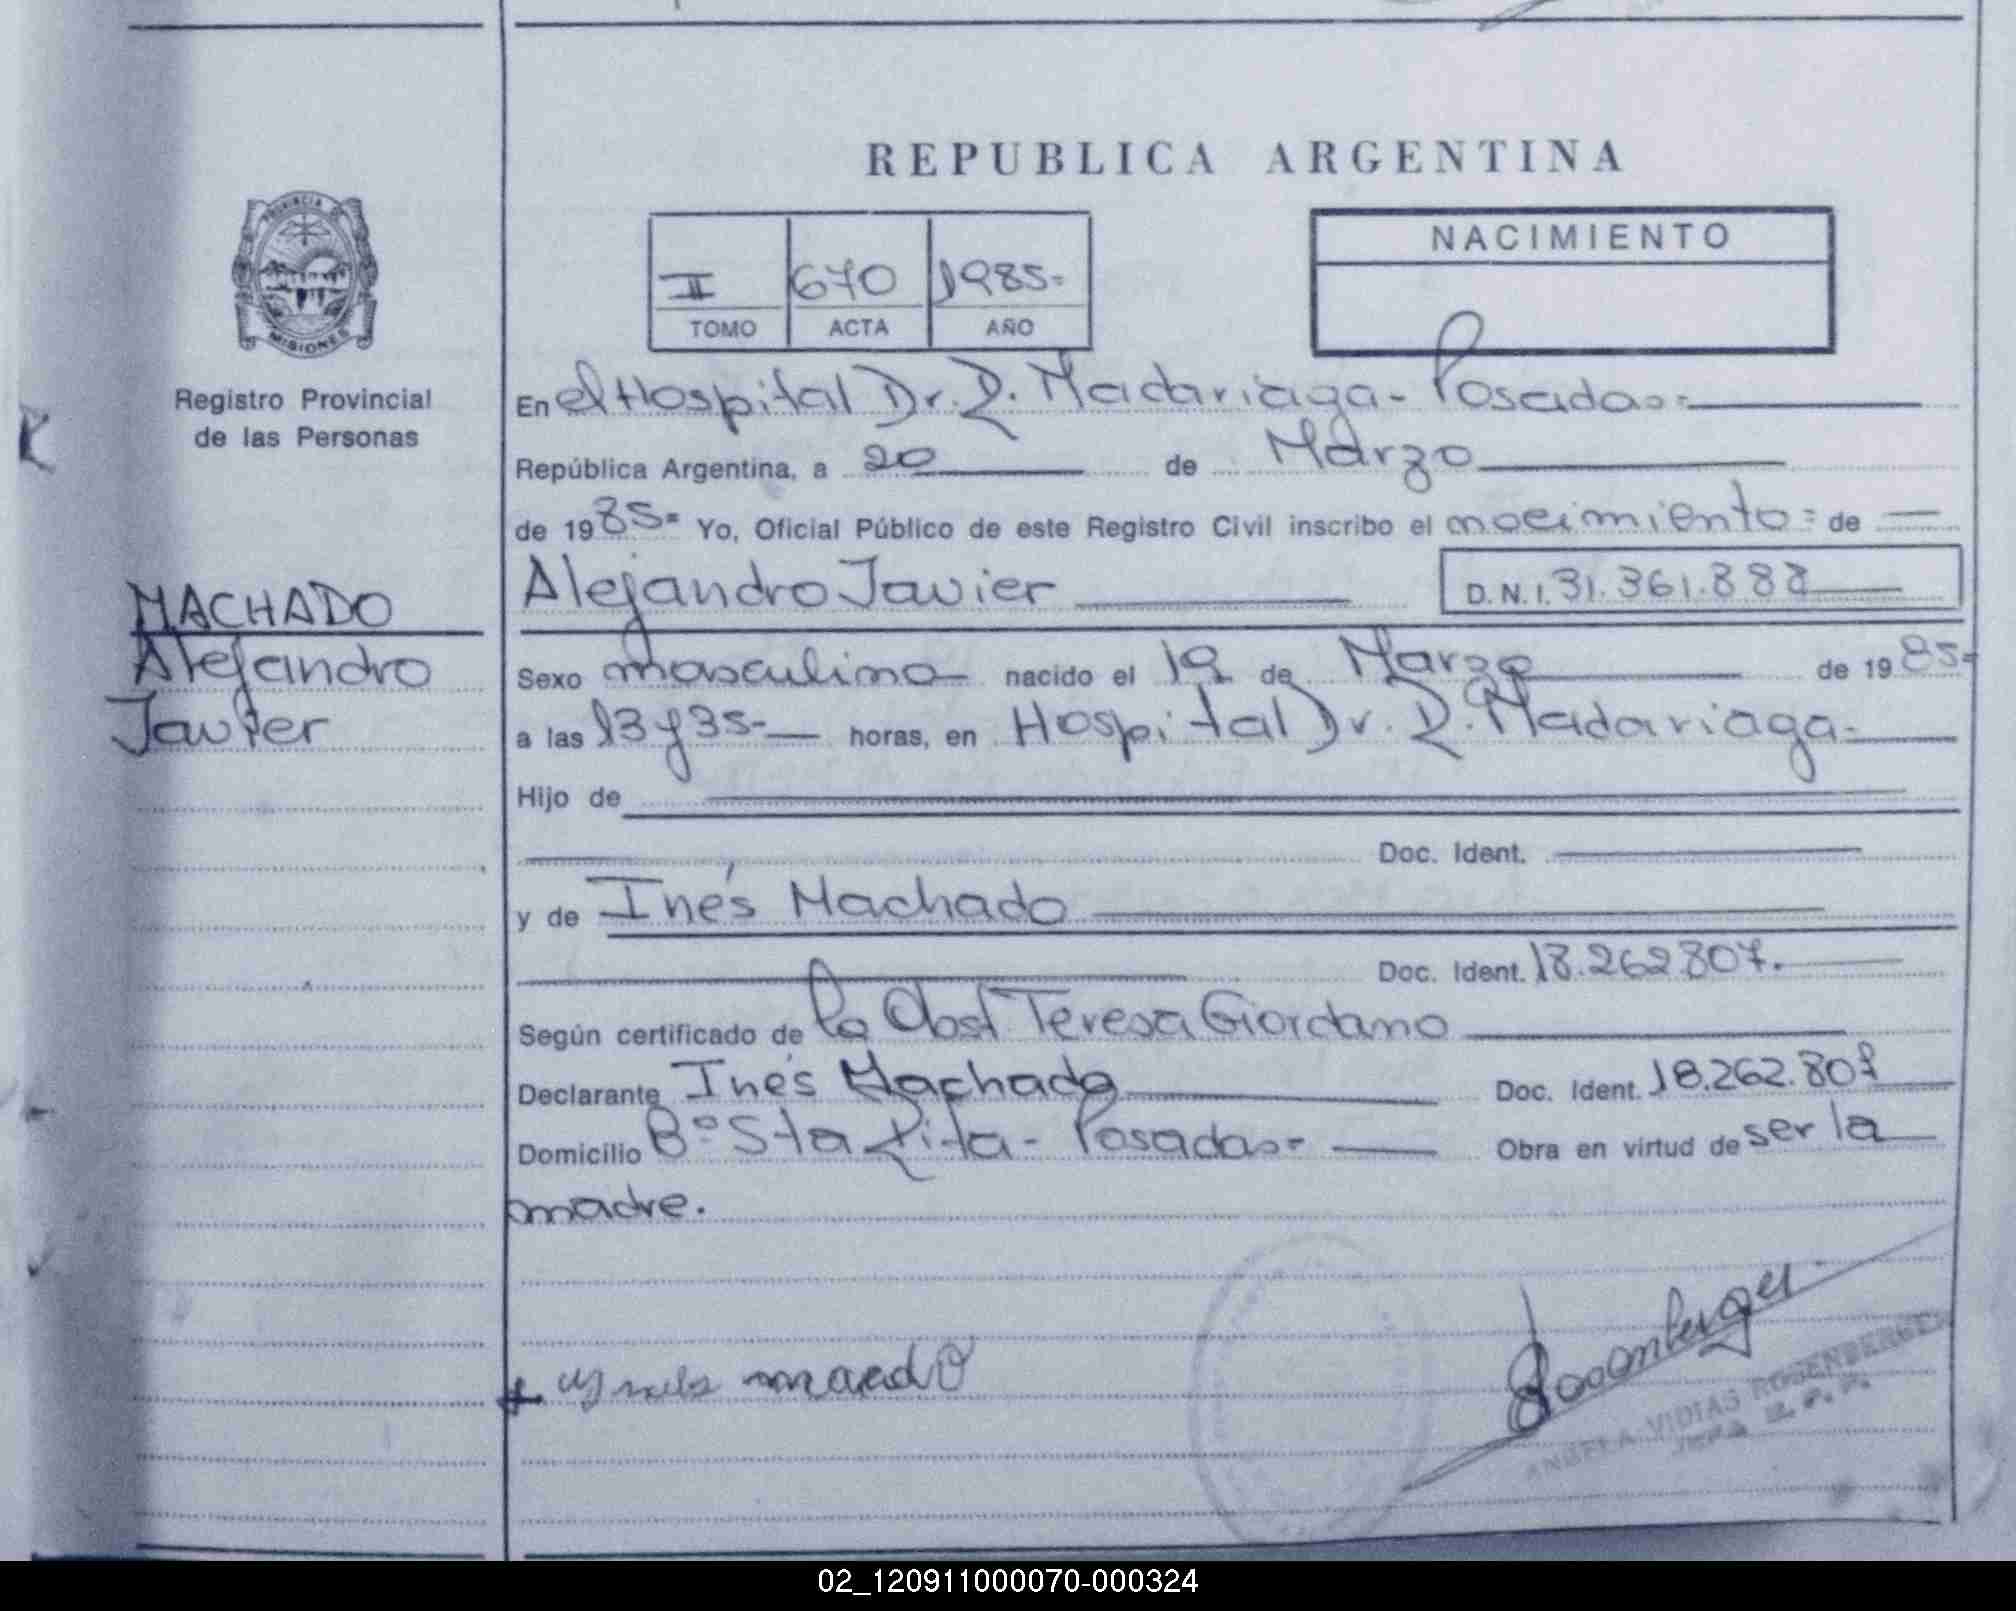 REPUBLICA ARGENTINA
PROVINCIA DE
MISIONES
Registro Provincial
de las Personas
MACHADO
Alejandro
Javier
II 670 1985-
TOMO ACTA AÑO
NACIMIENTO
En el Hospital Dr. R. Madariaga - Posadas=
República Argentina, a 20 de Marzo
de 1985= Yo, Oficial Público de este Registro Civil inscribo el nacimiento= de
Alejandro Javier D.N.I. 31.361.888
Sexo masculino nacido el 19 de Marzo de 1985=
a las 13 y 35- horas, en Hospital Dr. R. Madariaga-
Hijo de
Doc. Ident.
y de Inés Machado
Doc. Ident. 18.262.807.
Según certificado de la Obst Teresa Giordano
Declarante Inés Machado Doc. Ident. 18.262.807
Domicilio Bº Sta Rita - Posadas= Obra en virtud de ser la
madre.
ANGELA VIDIAS ROSENBERGER
JEFA R. P. P.
02_120911000070-000324